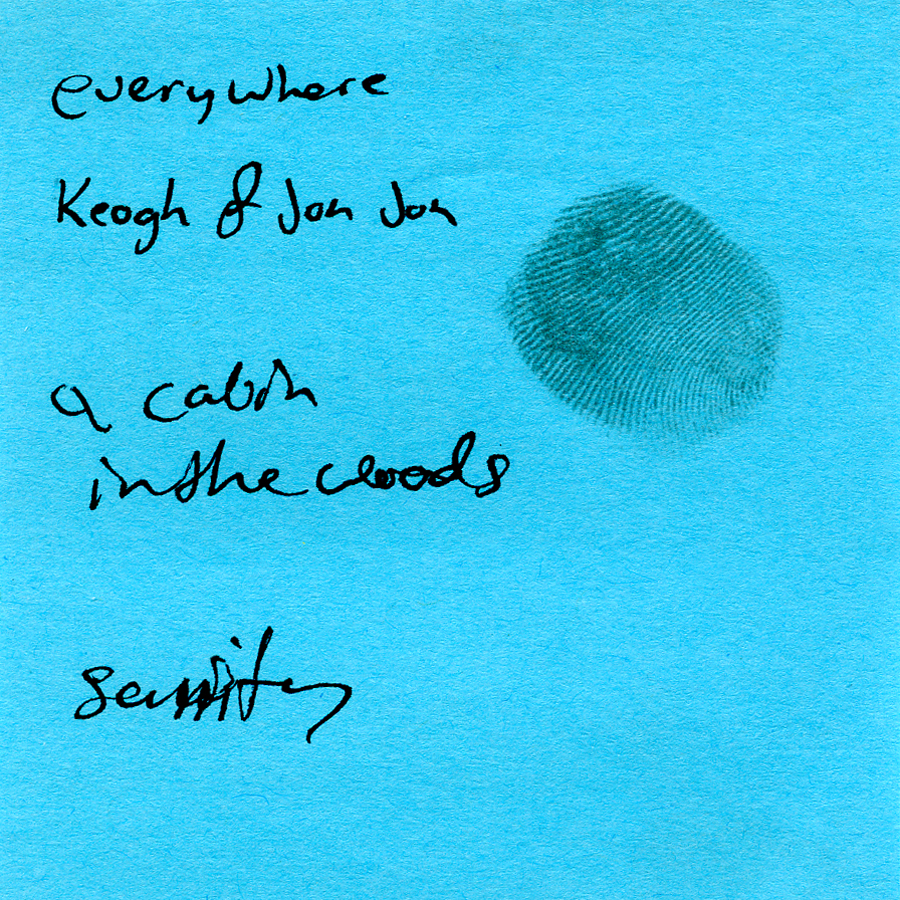 everywhere
Keogh & Jon Jon
a cabin
in the woods